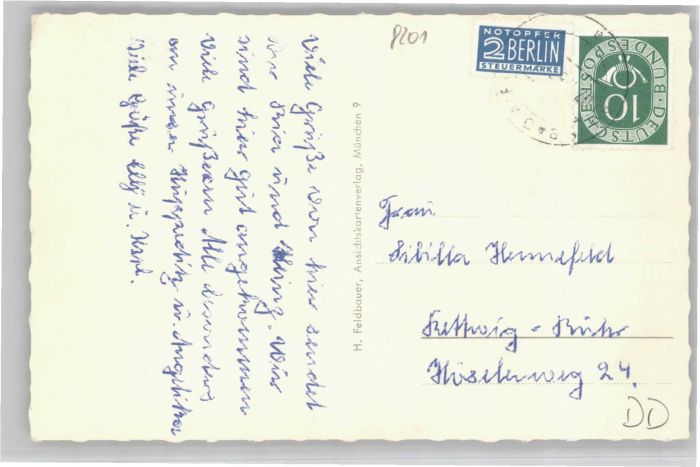 8201
NOTOPFER
2 BERLIN
STEUERMARKE
DEUTSCHE BUNDESPOST
10
Viele Grüße von hier sendet
und Wir
sind hier gut angekommen
Viele Grüße an Alle besonders
an u. Angelika
Viele Grüße Elly u. Karl.
H. Feldbauer, Ansichtskartenverlag, München 9
Frau
Sibilla Hennefeld
Kettwig - Ruhr
Höselerweg 24.
DD